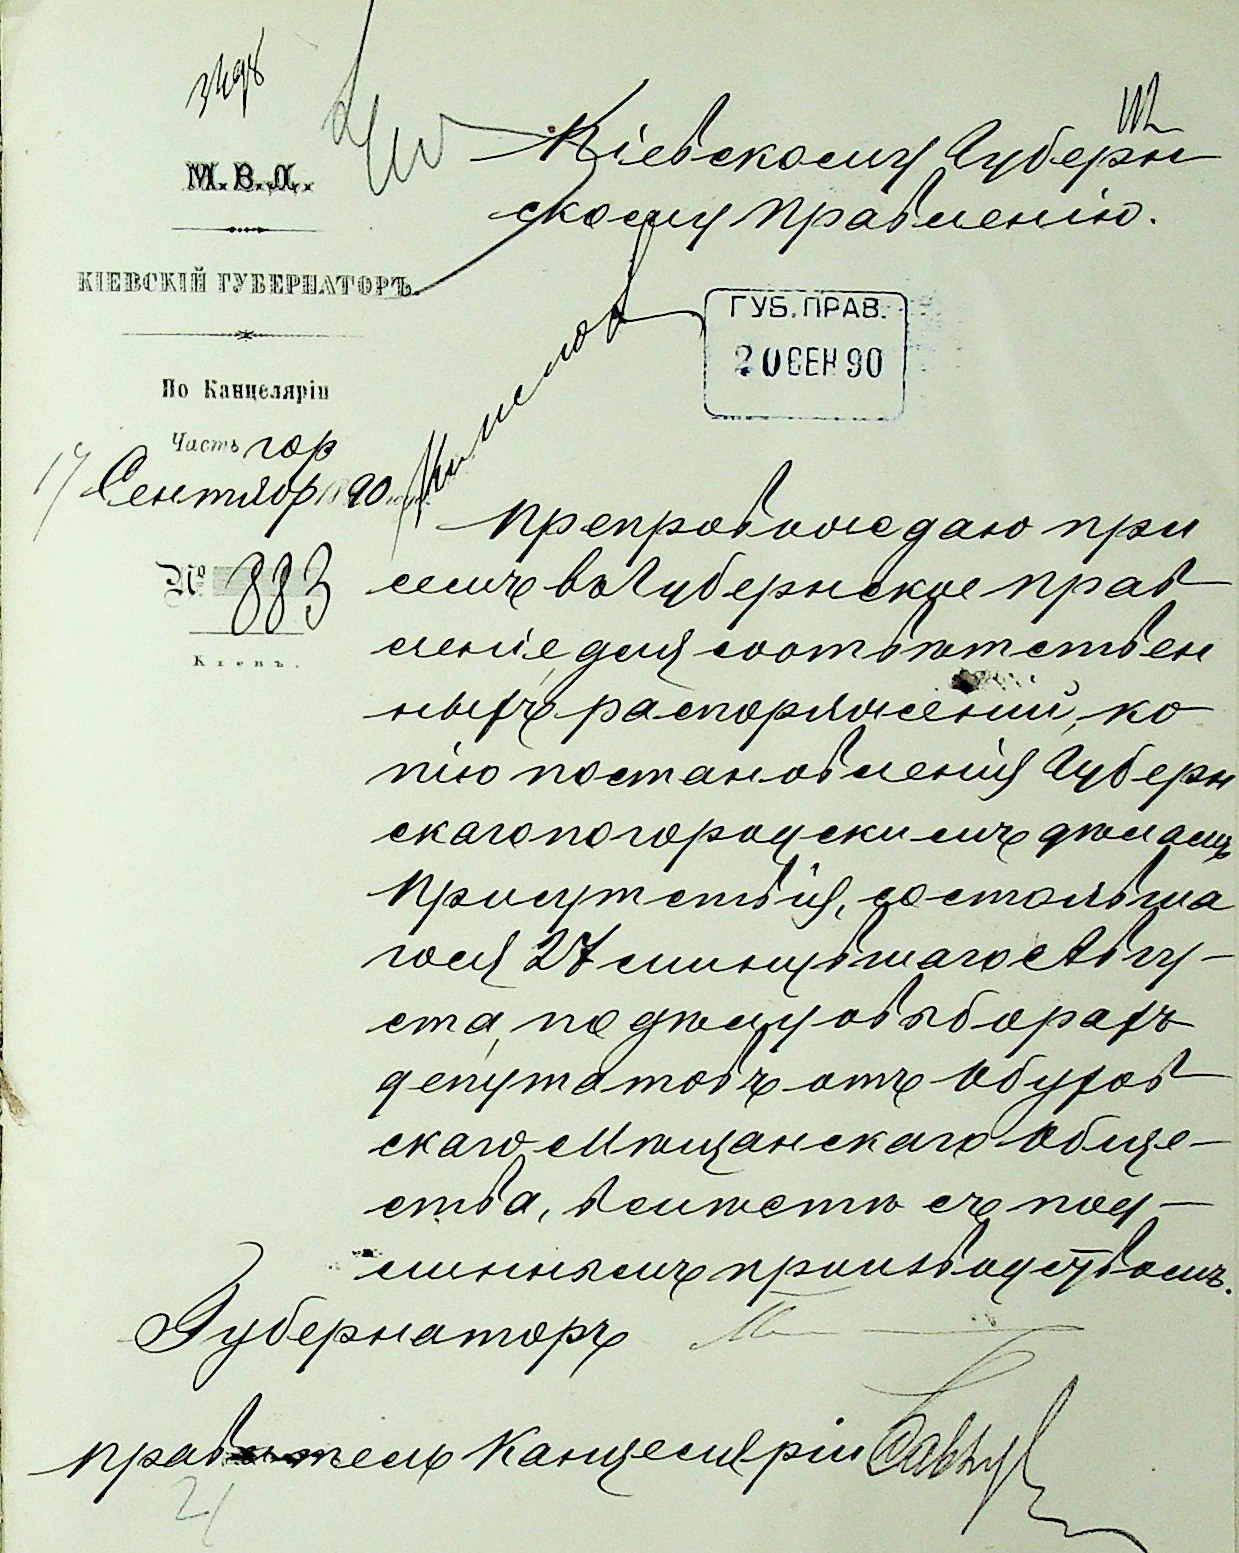 3498
М. В. Д.
КІЕВСКІЙ ГУБЕРНАТОРЪ.
По Канцеляріи
Часть гор
17 Сентябр 1890 года.
№ 883
Кіевъ.
Кіевскому Губерн
скому Правленію.
ГУБ. ПРАВ.
20 СЕН 90
Препровождаю при
семъ въ Губернское Прав
леніе, для соотвѣтствен
ныхъ распоряженій, ко
пію постановленія Губерн
скаго по городскимъ дѣламъ
Присутствія, состоявша
гося 27 минувшаго Авгу-
ста, по дѣлу о выборахъ
депутатовъ отъ Обухов
скаго Мѣщанскаго Обще-
ства, вмѣстѣ съ под-
линнымъ производствомъ.
Губернаторъ
Правитель Канцеляріи